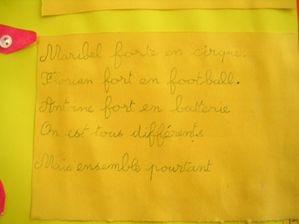 Maribel forte en cirque.
Florian fort en football.
Antoine fort en batterie
On est tous différents
Mais ensemble pourtant